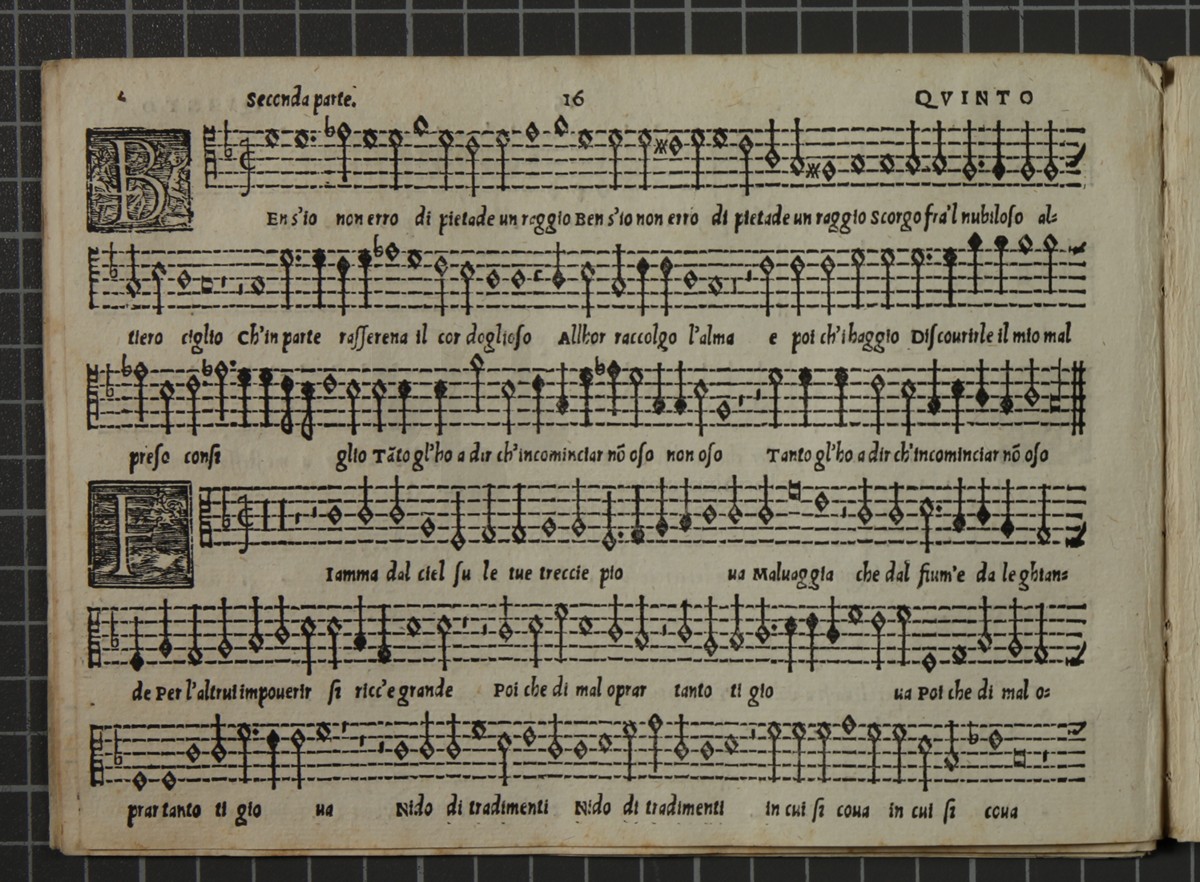 Seconda parte. 16 QVINTO
BEn s'io non erro di pietade un reggio Ben s'io non erro di pietade un raggio Scorgo fra'l nubiloso al-
tiero ciglio Ch'in parte rasserena il cor doglioso Allhor raccolgo l'alma e poi ch'i haggio Discourirle il mio mal
preso consi glio Tāto gl'ho a dir ch'incominciar nō oso non oso Tanto gl'ho a dir ch'incominciar nō oso
FIamma dal ciel su le tue treccie pio ua Maluaggia che dal fium'e da le ghian-
de Per l'altrui impouerir si ricc'e grande Poi che di mal oprar tanto ti gio ua Poi che di mal o-
prar tanto ti gio ua Nido di tradimenti Nido di tradimenti in cui si coua in cui si coua